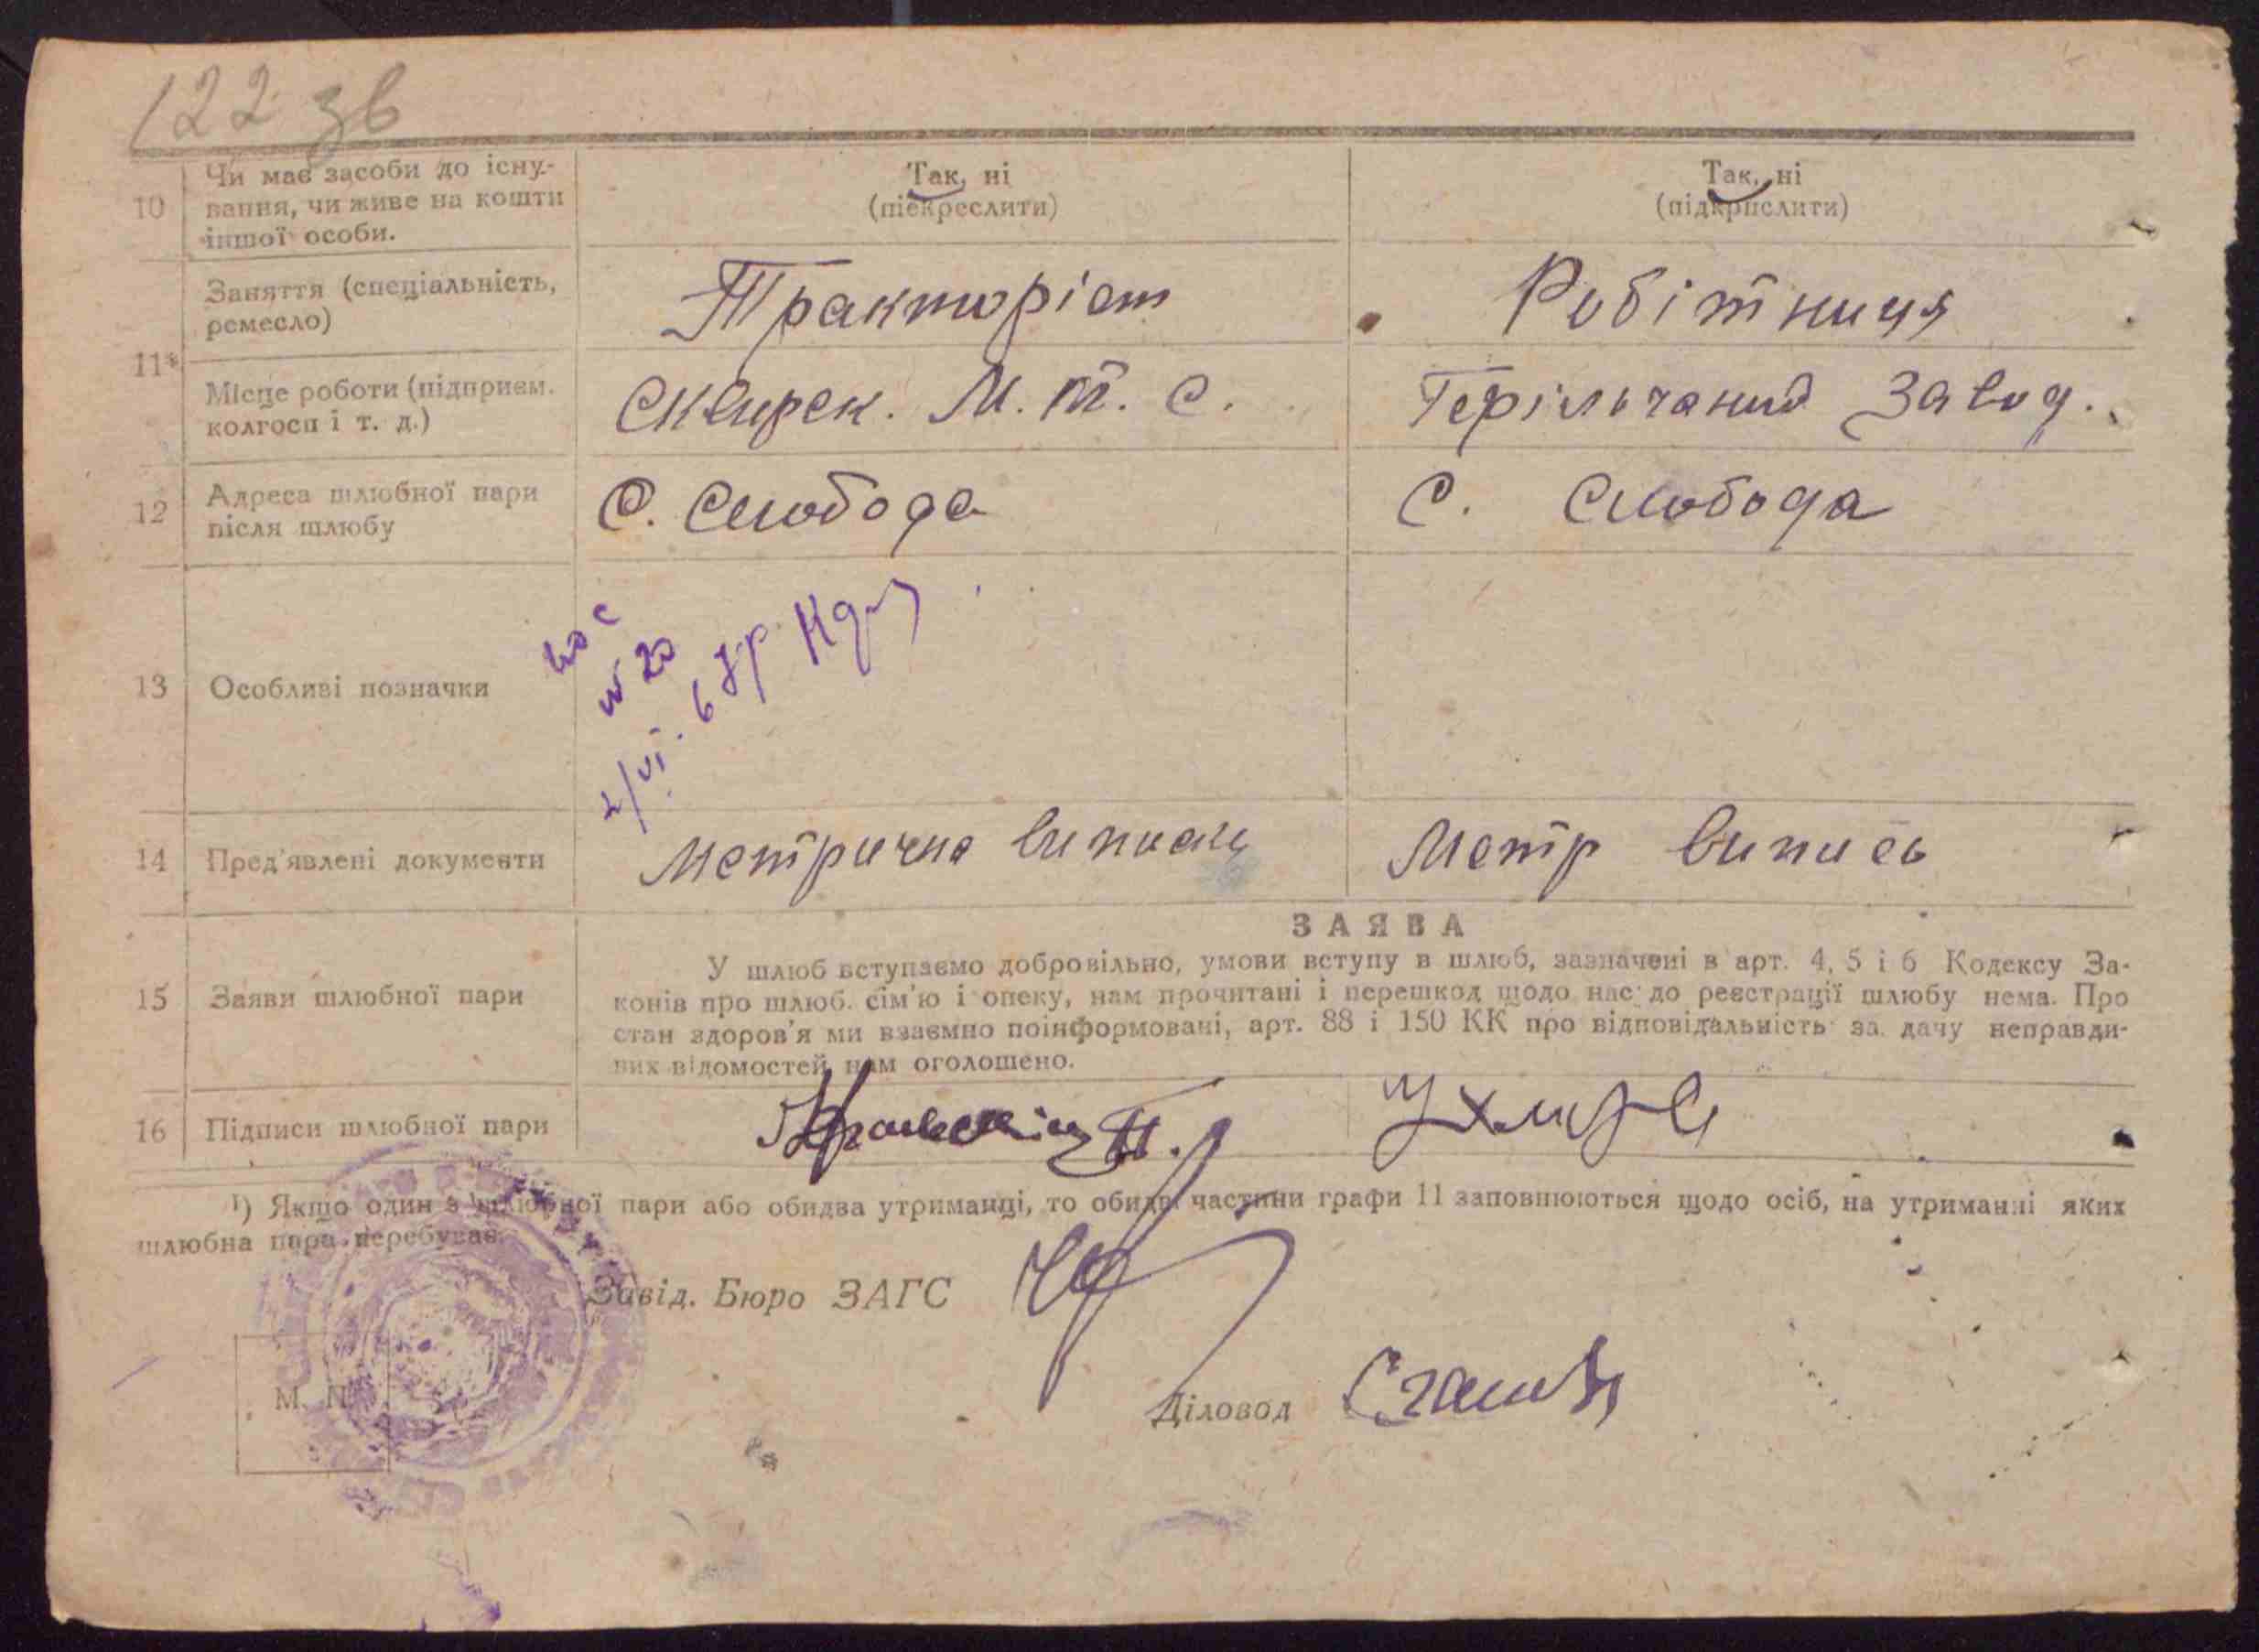 122 зв
10
Чи має засоби до існу-
вання, чи живе на кошти
іншої особи.
Так, ні
(піекреслити)
Так, ні
(підкрислити)
11*
Заняття (спеціальність,
ремесло)
Тракторіст
Робітниця
Місце роботи (підприєм.
колгосп і т. д.)
Сквирск. М. Т. С.
завод.
12
Адреса шлюбної пари
після шлюбу
С. Слобода
С. Слобода
13
Особливі позначки
№ 20
14
Пред'явлені документи
Метрична випись
Метр випись
ЗАЯВА
15
Заяви шлюбної пари
У шлюб вступаємо добровільно, умови вступу в шлюб, зазначені в арт. 4, 5 і 6 Кодексу За-
конів про шлюб. сім'ю і опеку, нам прочитані і перешкод щодо нас до реєстрації шлюбу нема. Про
стан здоров'я ми взаємно поінформовані, арт. 88 і 150 КК про відповідальність за дачу неправди-
вих відомостей нам оголошено.
16
Підписи шлюбної пари
¹) Якщо один з шлюбної пари або обидва утриманці, то обидві частини графи 11 заповнюються щодо осіб, на утриманні яких
шлюбна пара перебуває.
Завід. Бюро ЗАГС
М. П.
Діловод